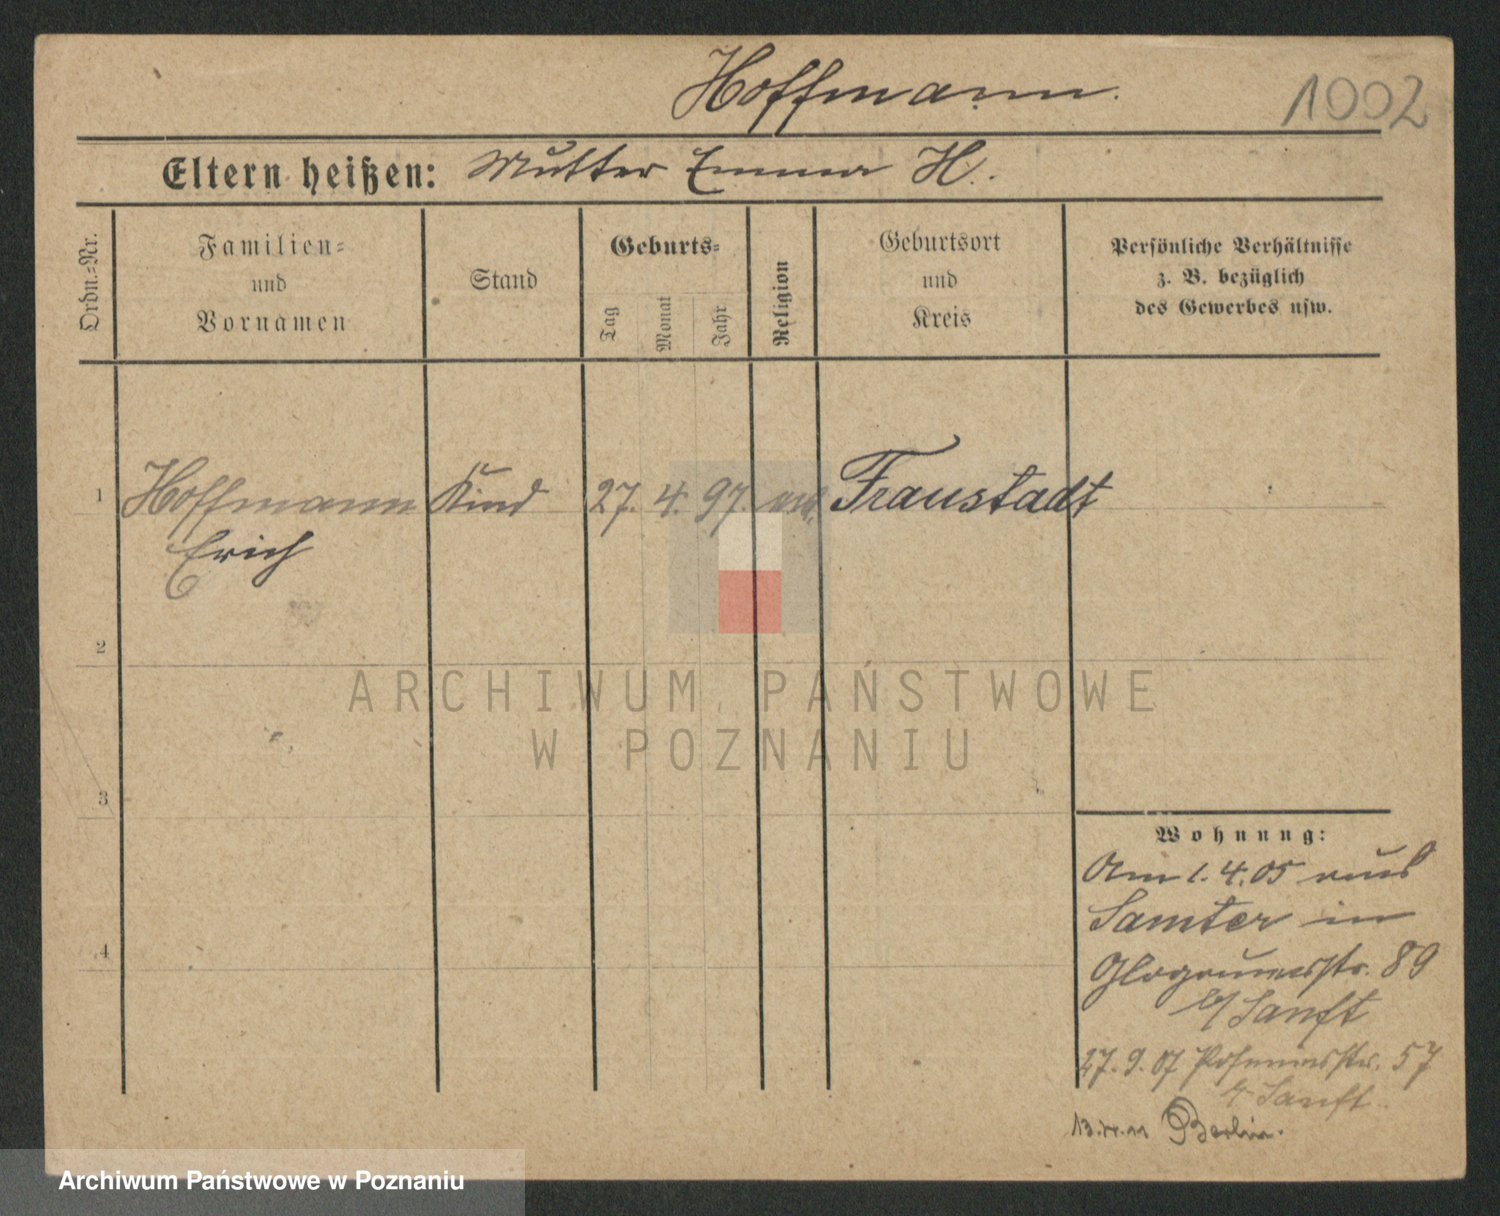 Hoffmann.
1002
Eltern heißen: Mutter Emma H.
Ordn.=Nr.
Familien=
und
Vornamen
Stand
Geburts=
Tag
Monat
Jahr
Religion
Geburtsort
und
Kreis
Persönliche Verhältnisse
z. B. bezüglich
des Gewerbes usw.
1 Hoffmann Kind 27. 4. 97. Fraustadt
Erich
2
3
4
Wohnung:
Am 1.4.05 aus
Samter in
Glogauerstr. 89
b/ Sanft
27.9.07 Posenerstr. 57
b/ Sanft
Berlin.
ARCHIWUM PAŃSTWOWE
W POZNANIU
Archiwum Państwowe w Poznaniu